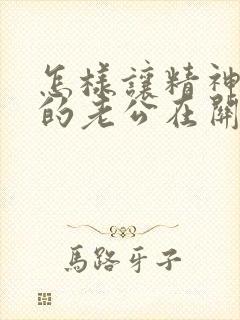 怎樣讓精神
的老公在開
馬路牙子